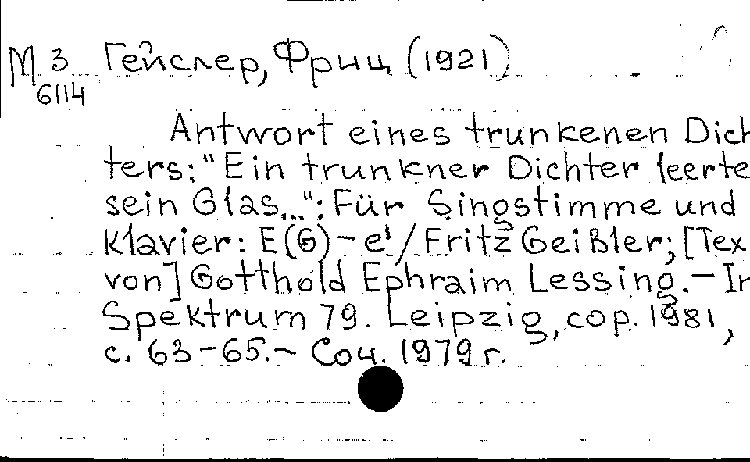 М 3 Гейслер, Фриц (1921)
6114
Antwort eines trunkenen Dich
ters: "Ein trunkner Dichter leerte
sein Glas...": Für Singstimme und
Klavier: E(G)-e¹/Fritz Geißler; [Tex
von] Gotthold Ephraim Lessing. - In
Spektrum 79. Leipzig, cop. 1981,
с. 63-65.- Соч. 1979 г.